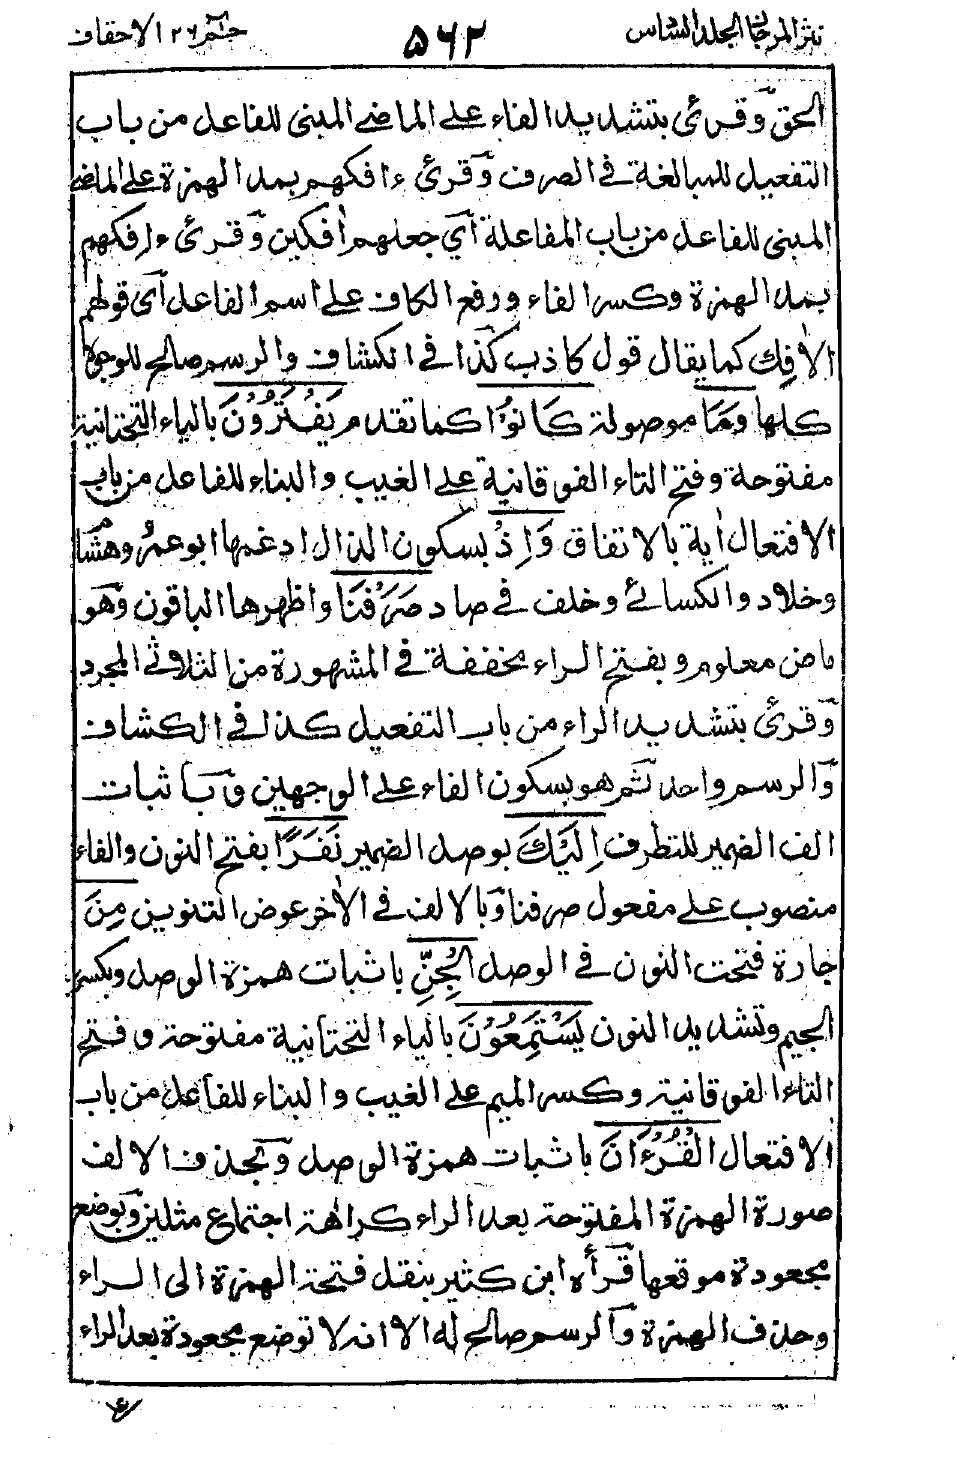 نثر المرجان المجلد السادس
۵۶۲
حٰم ۲۶ الاحقاف
الحق وقرئ بتشديد الفاء على الماضي المبنى للفاعل من باب
التفعيل للمبالغة في الصرف وقرئ ءافكهم بمد الهمزة على الماضي
المبنى للفاعل من باب المفاعلة أي جعلهم أفكين وقرئ ءافكهم
بمد الهمزة وكسر الفاء ورفع الكاف على اسم الفاعل أى قولهم
الأفك كما يقال قول كاذب كذا في الكشاف والرسم صالح للوجوه
كلها وَمَا موصولة كَانُوْا كما تقدم يَفْتَرُوْنَ بالياء التحتانية
مفتوحة وفتح التاء الفوقانية على الغيب والبناء للفاعل من باب
الافتعال أية بالاتفاق وَاِذْ بسكون الذال ادغمها ابو عمرو وهشام
وخلاد والكسائي وخلف في صاد صَرَفْنَا واظهرها الباقون وهو
ماض معلوم وبفتح الراء مخففة في المشهورة من الثلاثي المجرد
وقرئ بتشديد الراء من باب التفعيل كذا في الكشاف
والرسم واحد ثم هو بسكون الفاء على الوجهين وباثبات
الف الضمير للتطرف اِلَيْكَ بوصل الضمير نَفَرًا بفتح النون والفاء
منصوب على مفعول صرفنا وبالالف في الأخر عوض التنوين مِنَ
جارة فتحت النون في الوصل الْجِنِّ باثبات همزة الوصل وبكسر
الجيم وتشديد النون يَسْتَمِعُوْنَ بالياء التحتانية مفتوحة وفتح
التاء الفوقانية وكسر الميم على الغيب والبناء للفاعل من باب
الافتعال الْقُرْءَانَ باثبات همزة الوصل وبحذف الالف
صورة الهمزة المفتوحة بعد الراء كراهة اجتماع مثلين وبوضع
مجعودة موقعها قرأه ابن كثير بنقل فتحة الهمزة الى الراء
وحذف الهمزة والرسم صالح له الا انه لا توضع مجعودة بعد الراء